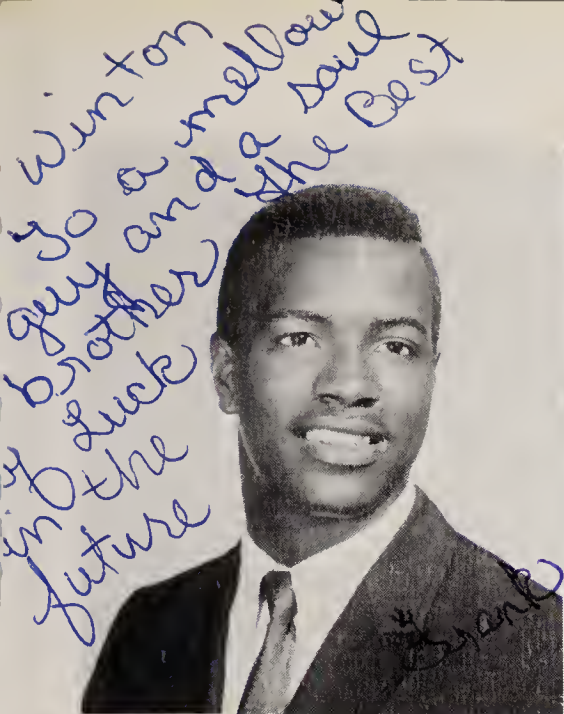 Winton
To a mellow
guy and a soul
brother the Best
of Luck
in the
future
"Frank